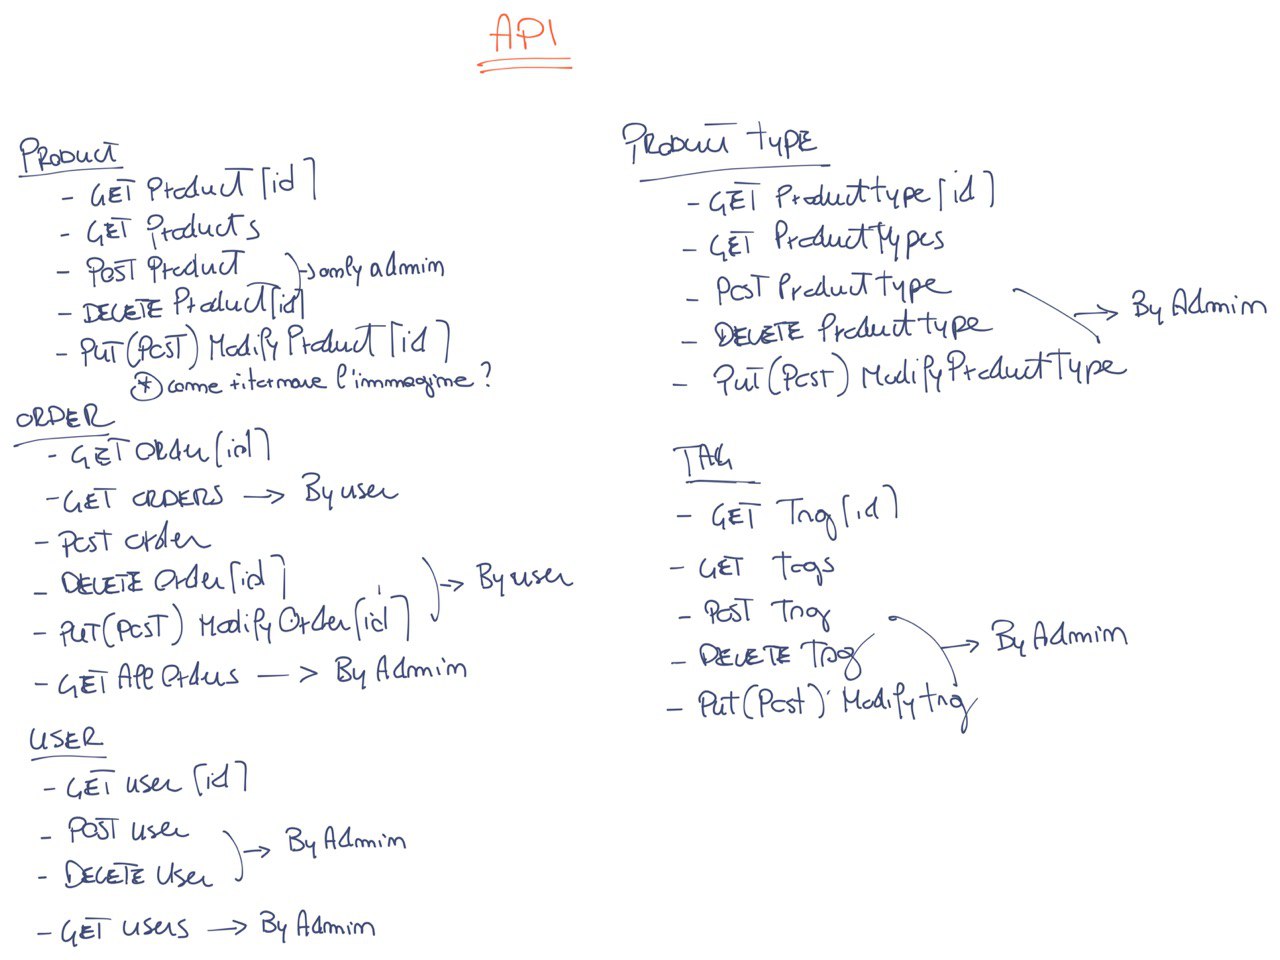 API
PRODUCT
- GET Product [id]
- GET Products
- POST Product
→ only admin
- DELETE Product[id]
- PUT (POST) Modify Product [id]
* come ritornare l'immagine?
ORDER
- GET Order [id]
- GET ORDERS → By user
- Post order
- DELETE Order [id]
- PUT (POST) Modify Order [id]
→ By user
- GET All Orders → By Admin
USER
- GET user [id]
- POST user
- DELETE User
→ By Admin
- GET users → By Admin
PRODUCT TYPE
- GET Product type [id]
- GET Product Types
- POST Product type
→ By Admin
- DELETE Product type
- Put (Post) Modify Product Type
TAG
- GET Tag [id]
- GET Tags
- POST Tag
→ By Admin
- DELETE Tag
- Put (Post) Modify tag